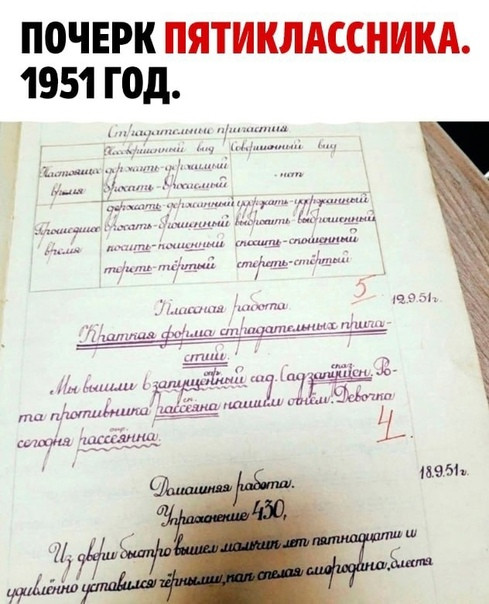 ПОЧЕРК ПЯТИКЛАССНИКА.
1951 ГОД.
Страдательные причастия
Несовершенный вид Совершенный вид
Настоящее время
держать-держимый
бросать-бросаемый
- нет
Прошедшее время
держать-держанный удержать-удержанный
бросать-брошенный выбросить-выброшенный
носить-ношенный сносить-сношенный
тереть-тёртый стереть-стёртый
5
12.9.51г.
Классная работа.
Краткая форма страдательных прича-
стий.
опр. сказ.
Мы вышли в запущенный сад. Сад запущен. Ро-
та противника рассеяна нашим огнём. Девочка
сегодня рассеянна.
4.
18.9.51г.
Домашняя работа.
Упражнение 430,
Из двери быстро вышел мальчик лет пятнадцати и
удивлённо уставился чёрными, как спелая смородина, блестя